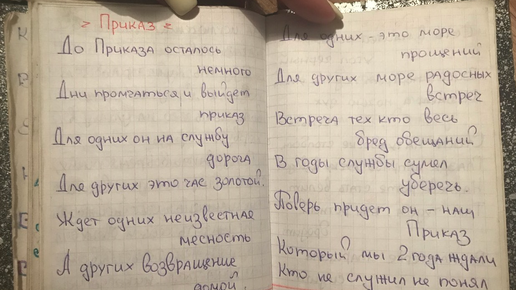 > Приказ <
До Приказа осталось
немного
Дни промчаться, и выйдет
приказ
Для одних он на службу
дорога
Для других это час золотой.
Ждет одних неизвестная
месность
А других возвращение
домой.
Для одних - это море
прощений
Для других море радосных
встреч
Встреча тех кто весь
бред обещаний
В годы службы сумел
уберечь.
Поверь придет он - наш
Приказ
Который мы 2 года ждали
Кто не служил не понял